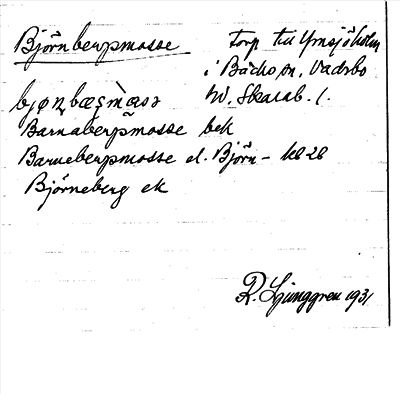 Björnbergmosse torp till Ymsjöholm
i Bäcks sn, Vadsbo
hd. Skarab. l.
bjønbæşmàsə
Barnabergmosse bek
Barnebergmosse el. Björn- k828
Björneberg ek
R. Ljunggren 1931